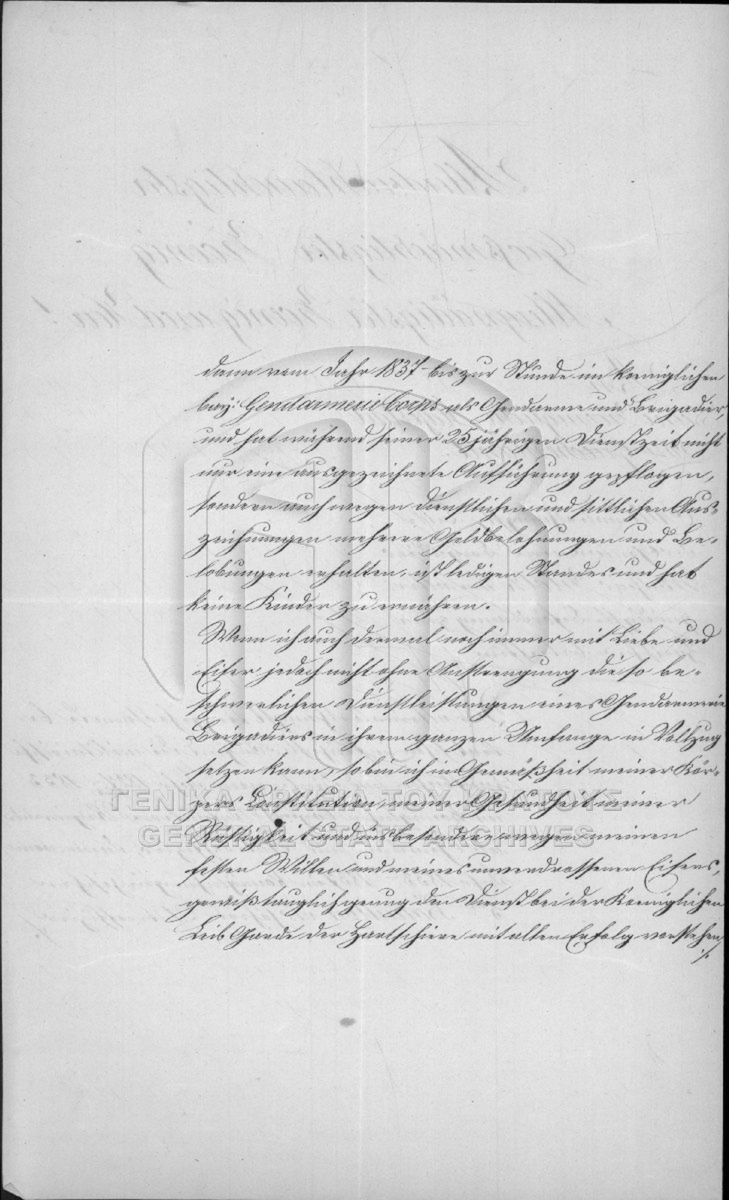 dann vom Jahr 1837 bis zur Stunde im koeniglichen
bay: Gendarmerie Corps als Gendarme und Brigadier,
und hat während seiner 25 jährigen Dienstzeit nicht
nur eine ausgezeichnete Aufführung gepflogen,
sondern auch wegen dienstlichen und sittlichen Aus-
zeichnungen mehrere Geldbelohnungen und Be-
lobungen erhalten, ist ledigen Standes und hat
keine Kinder zu ernähren.
Wenn ich auch dermal noch immer mit Liebe und
Eifer jedoch nicht ohne Anstrengung die so be-
schwerlichen Dienstleistungen eines Gendarmerie
Brigadiers in ihrem ganzen Umfange in Vollzug
setzen kann, so bin ich in Gemäßheit meiner Kör-
pers Constitution, meiner Gesundheit meiner
Rüstigkeit und insbesondere wegen meinen
festen Willen und meines unverdrossenen Eifers,
gewiß tauglich genug den Dienst bei der Koeniglichen
Leib Garde der Hartschiere mit allen Erfolg vorstehen
ΓΕΝΙΚΑ ΑΡΧΕΙΑ ΤΟΥ ΚΡΑΤΟΥΣ
GENERAL STATE ARCHIVES